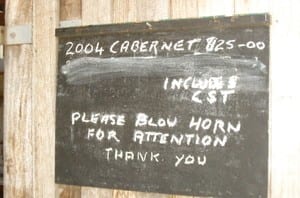 2004 CABERNET $25-00
INCLUDES
GST
PLEASE BLOW HORN
FOR ATTENTION
THANK YOU